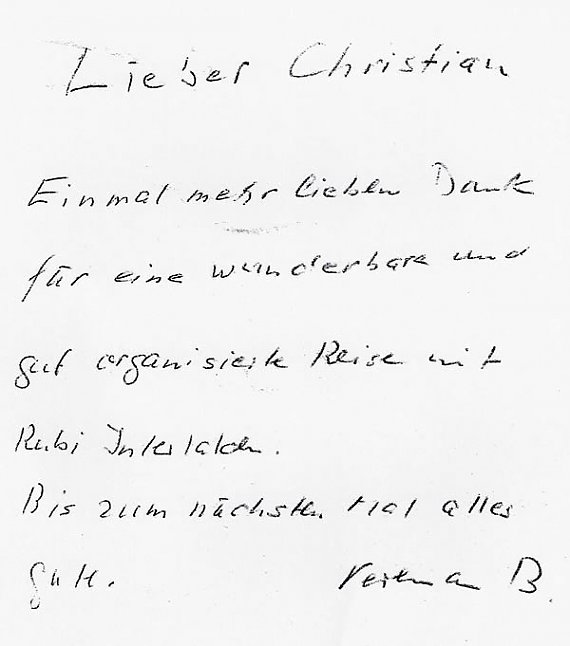 Lieber Christian
Einmal mehr lieben Dank
für eine wunderbare und
gut organisierte Reise mit
Rubi Interlaken.
Bis zum nächsten Mal alles
gute. B.